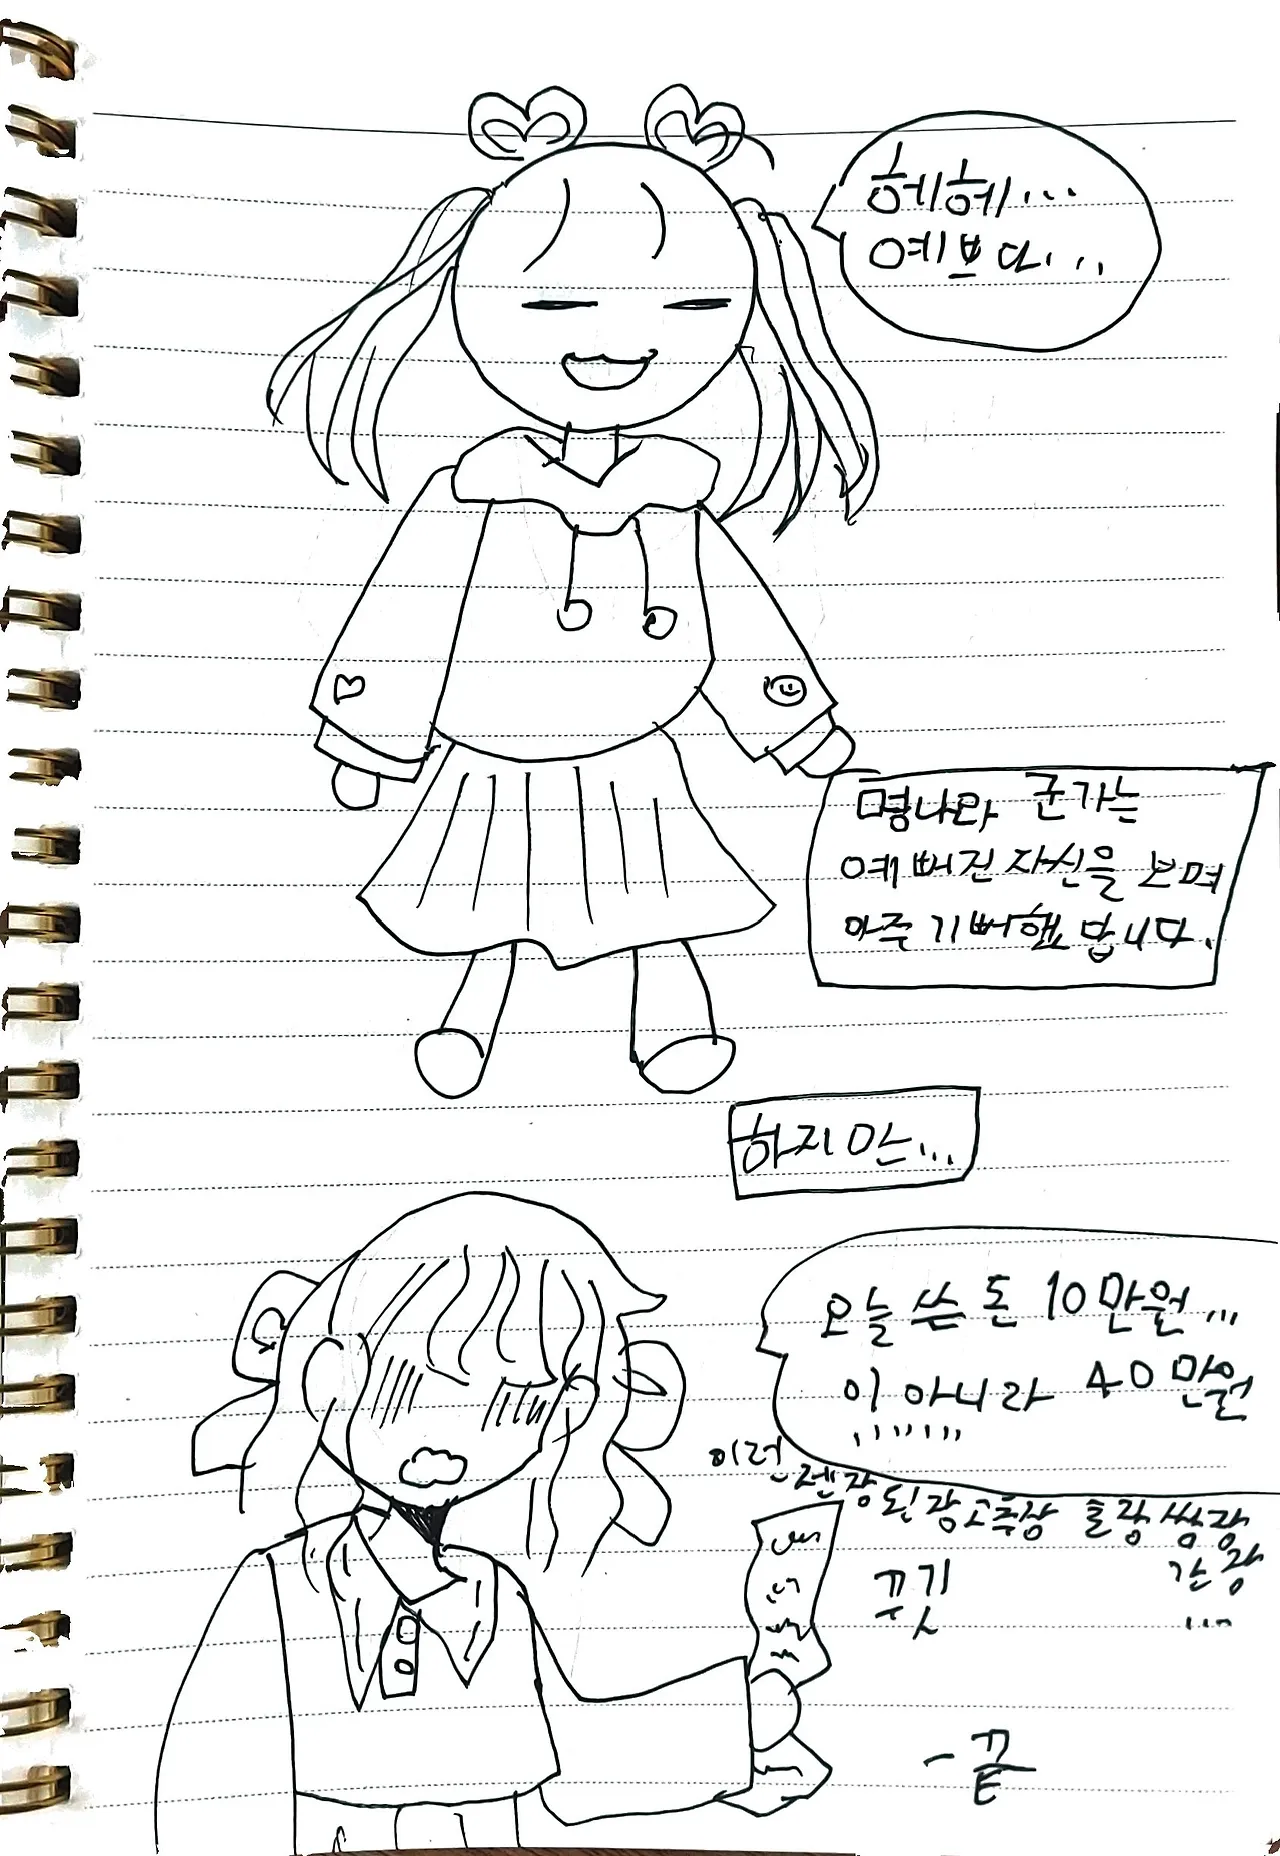 헤헤...
예쁘다...
명나라 군가는
예뻐진 자신을 보며
아주 기뻐했답니다.
하지만...
오늘 쓴 돈 10만원...
이 아니라 40만원
이런 젠장 된장 고추장 춘장 쌈장
간장
...
꾸깃
- 끝